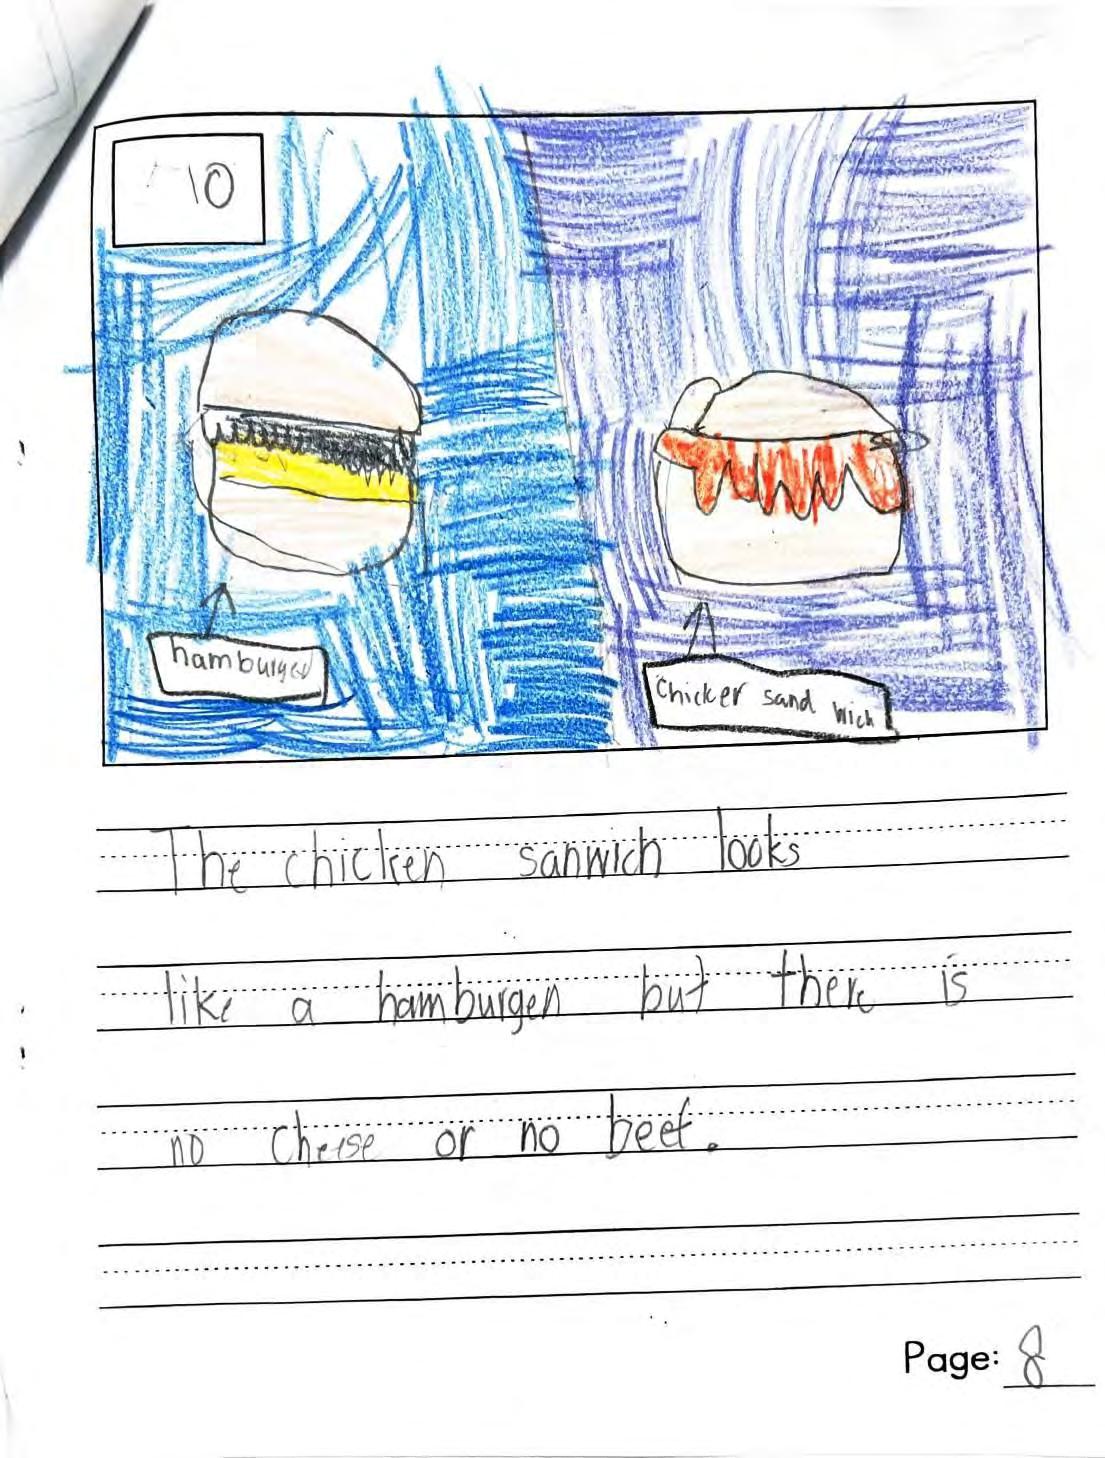 10
hamburger
Chicker sand wich
The chicken sanwich looks
like a hamburgen but there is
no cheese or no beef.
Page: 8